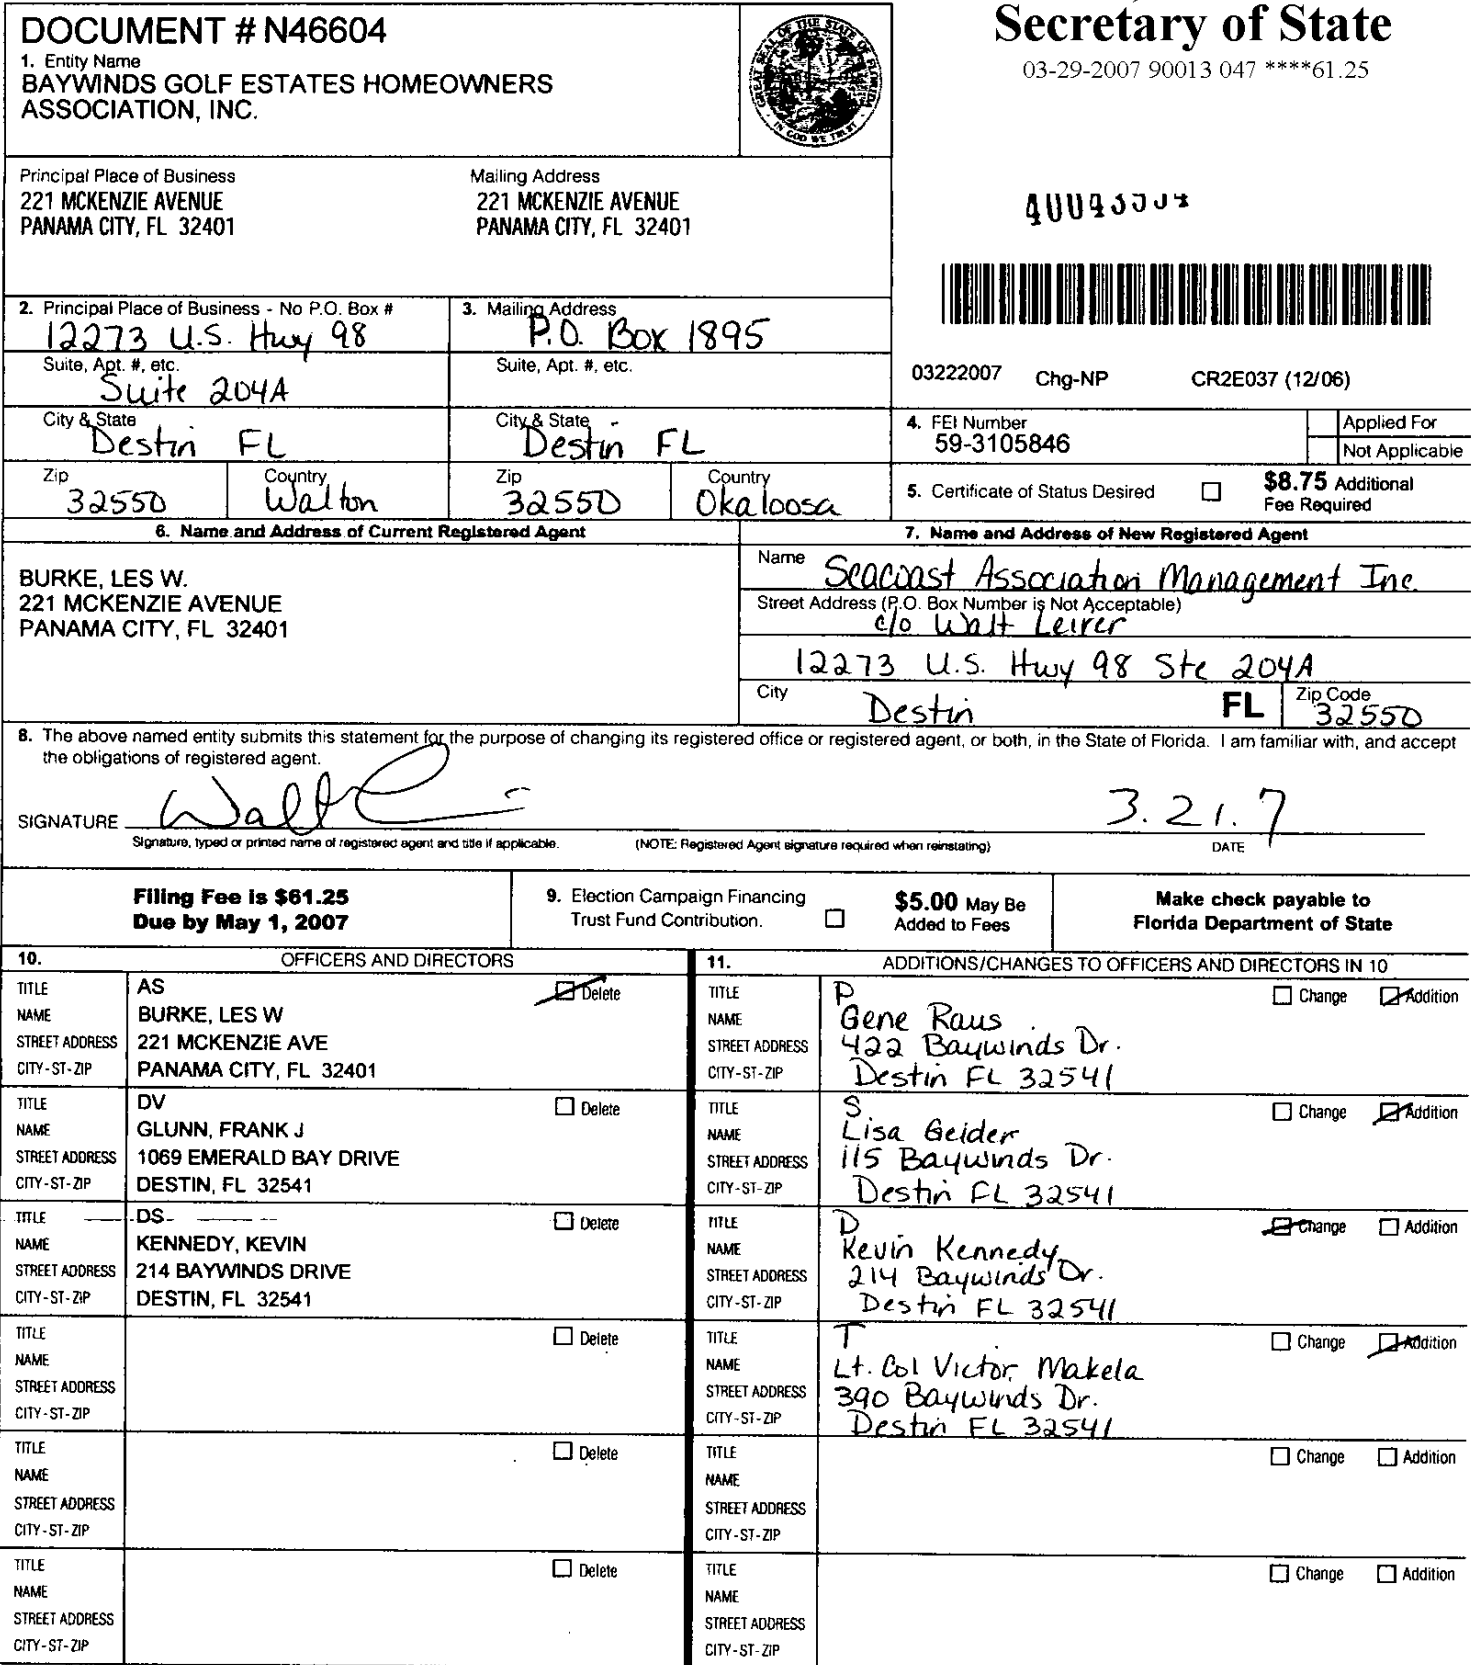 DOCUMENT # N46604
1. Entity Name
BAYWINDS GOLF ESTATES HOMEOWNERS
ASSOCIATION, INC.
GREAT SEAL OF THE STATE OF FLORIDA
IN GOD WE TRUST
Secretary of State
03-29-2007 90013 047 ****61.25
Principal Place of Business
221 MCKENZIE AVENUE
PANAMA CITY, FL 32401
Mailing Address
221 MCKENZIE AVENUE
PANAMA CITY, FL 32401
2. Principal Place of Business - No P.O. Box #
12273 U.S. Hwy 98
3. Mailing Address
P.O. Box 1895
Suite, Apt. #, etc.
Suite 204A
Suite, Apt. #, etc.
03222007 Chg-NP CR2E037 (12/06)
City & State
Destin FL
City & State
Destin FL
4. FEI Number
59-3105846
Applied For
Not Applicable
Zip
32550
Country
Walton
Zip
32550
Country
Okaloosa
5. Certificate of Status Desired
$8.75 Additional
Fee Required
6. Name and Address of Current Registered Agent
BURKE, LES W.
221 MCKENZIE AVENUE
PANAMA CITY, FL 32401
7. Name and Address of New Registered Agent
Name Seacoast Association Management Inc.
Street Address (P.O. Box Number is Not Acceptable)
c/o Walt Leirer
12273 U.S. Hwy 98 Ste 204A
City
Destin FL
Zip Code
32550
8. The above named entity submits this statement for the purpose of changing its registered office or registered agent, or both, in the State of Florida. I am familiar with, and accept
the obligations of registered agent.
SIGNATURE Walt 3.21.7
Signature, typed or printed name of registered agent and title if applicable. (NOTE: Registered Agent signature required when reinstating) DATE
Filing Fee is $61.25
Due by May 1, 2007
9. Election Campaign Financing
Trust Fund Contribution.
$5.00 May Be
Added to Fees
Make check payable to
Florida Department of State
10. OFFICERS AND DIRECTORS
TITLE AS Delete
NAME BURKE, LES W
STREET ADDRESS 221 MCKENZIE AVE
CITY-ST-ZIP PANAMA CITY, FL 32401
TITLE DV Delete
NAME GLUNN, FRANK J
STREET ADDRESS 1069 EMERALD BAY DRIVE
CITY-ST-ZIP DESTIN, FL 32541
TITLE DS Delete
NAME KENNEDY, KEVIN
STREET ADDRESS 214 BAYWINDS DRIVE
CITY-ST-ZIP DESTIN, FL 32541
TITLE Delete
NAME
STREET ADDRESS
CITY-ST-ZIP
TITLE Delete
NAME
STREET ADDRESS
CITY-ST-ZIP
TITLE Delete
NAME
STREET ADDRESS
CITY-ST-ZIP
11. ADDITIONS/CHANGES TO OFFICERS AND DIRECTORS IN 10
TITLE P Change Addition
NAME Gene Raus
STREET ADDRESS 422 Baywinds Dr.
CITY-ST-ZIP Destin FL 32541
TITLE S Change Addition
NAME Lisa Geider
STREET ADDRESS 115 Baywinds Dr.
CITY-ST-ZIP Destin FL 32541
TITLE D Change Addition
NAME Kevin Kennedy
STREET ADDRESS 214 Baywinds Dr.
CITY-ST-ZIP Destin FL 32541
TITLE T Change Addition
NAME Lt. Col Victor Makela
STREET ADDRESS 390 Baywinds Dr.
CITY-ST-ZIP Destin FL 32541
TITLE Change Addition
NAME
STREET ADDRESS
CITY-ST-ZIP
TITLE Change Addition
NAME
STREET ADDRESS
CITY-ST-ZIP